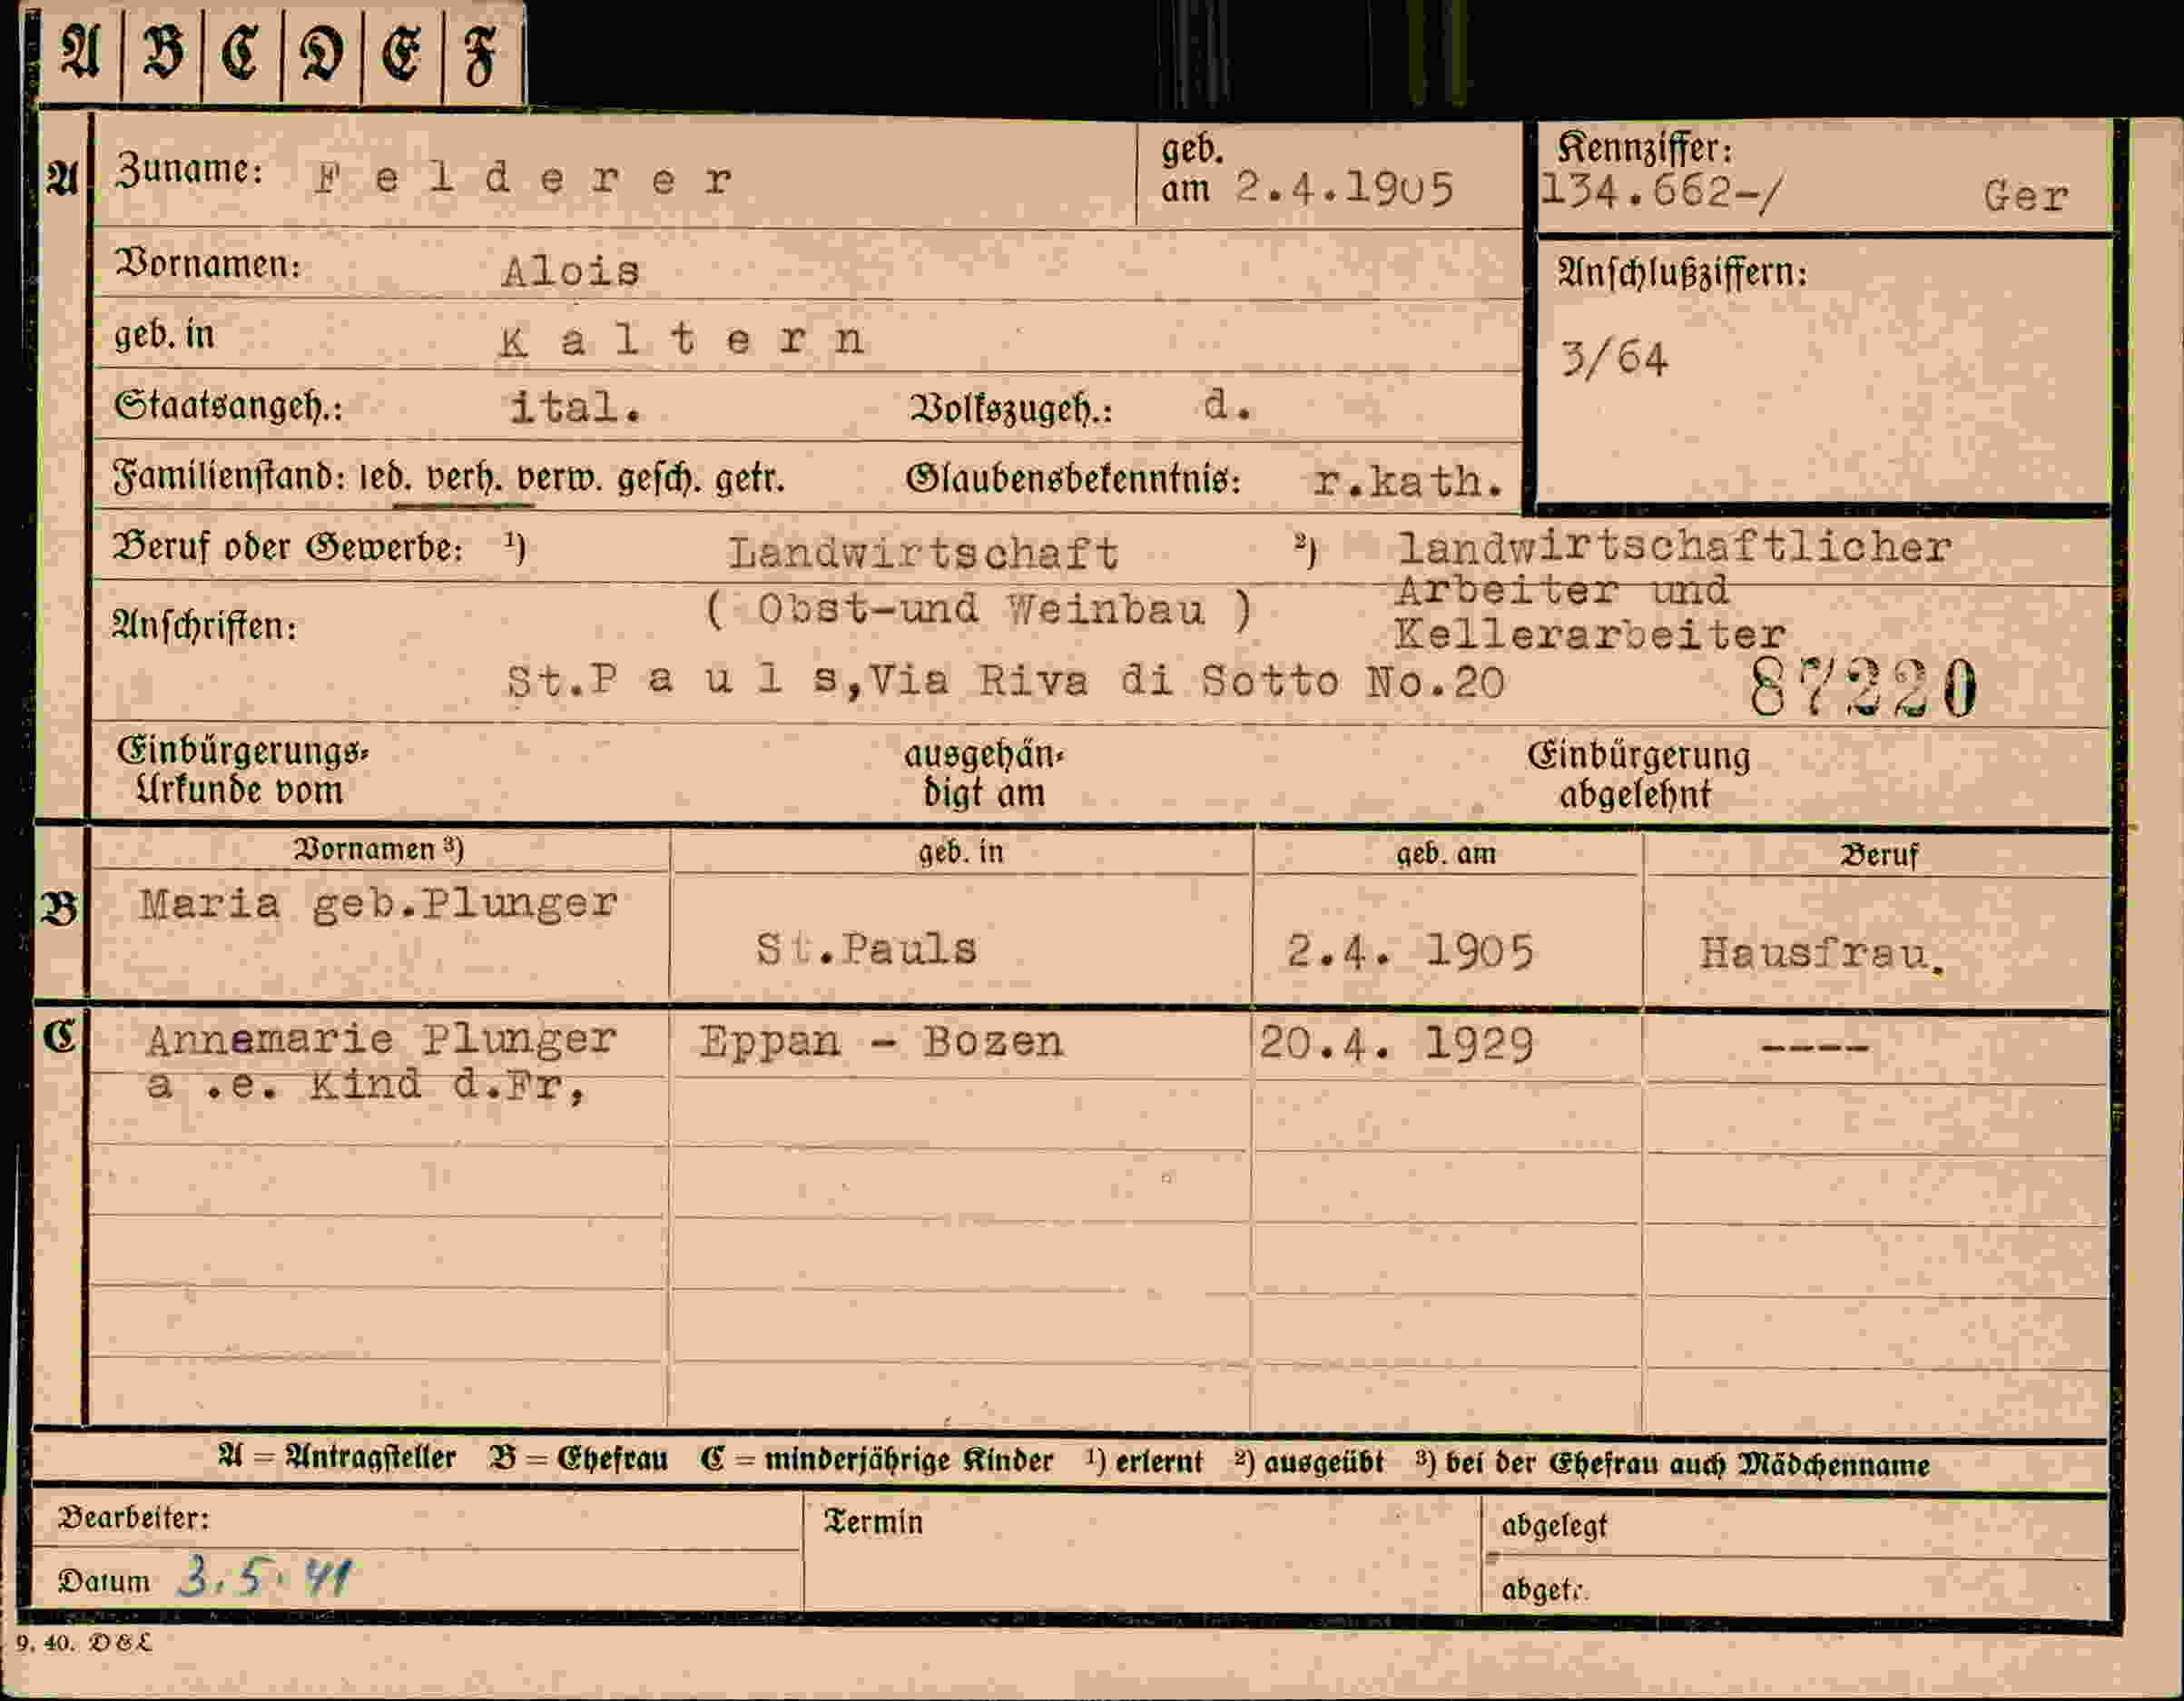 A B C D E F
A Zuname: F e l d e r e r geb. am 2.4.1905 Kennziffer: 134.662-/ Ger
Vornamen: Alois
Anschlußziffern:
geb. in K a l t e r n
3/64
Staatsangeh.: ital. Volkszugeh.: d.
Familienstand: led. verh. verw. gesch. getr. Glaubensbekenntnis: r.kath.
Beruf oder Gewerbe: ¹) Landwirtschaft ²) landwirtschaftlicher
( Obst-und Weinbau ) Arbeiter und
Anschriften: Kellerarbeiter
St.P a u l s,Via Riva di Sotto No.20 87220
Einbürgerungs- ausgehän- Einbürgerung
Urkunde vom digt am abgelehnt
Vornamen ³) geb. in geb. am Beruf
B Maria geb.Plunger
St.Pauls 2.4. 1905 Hausfrau.
C Annemarie Plunger Eppan - Bozen 20.4. 1929 ----
a .e. Kind d.Fr,
A = Antragsteller B = Ehefrau C = minderjährige Kinder ¹) erlernt ²) ausgeübt ³) bei der Ehefrau auch Mädchenname
Bearbeiter: Termin abgelegt
Datum 3.5.41 abgetr.
9. 40. D&L